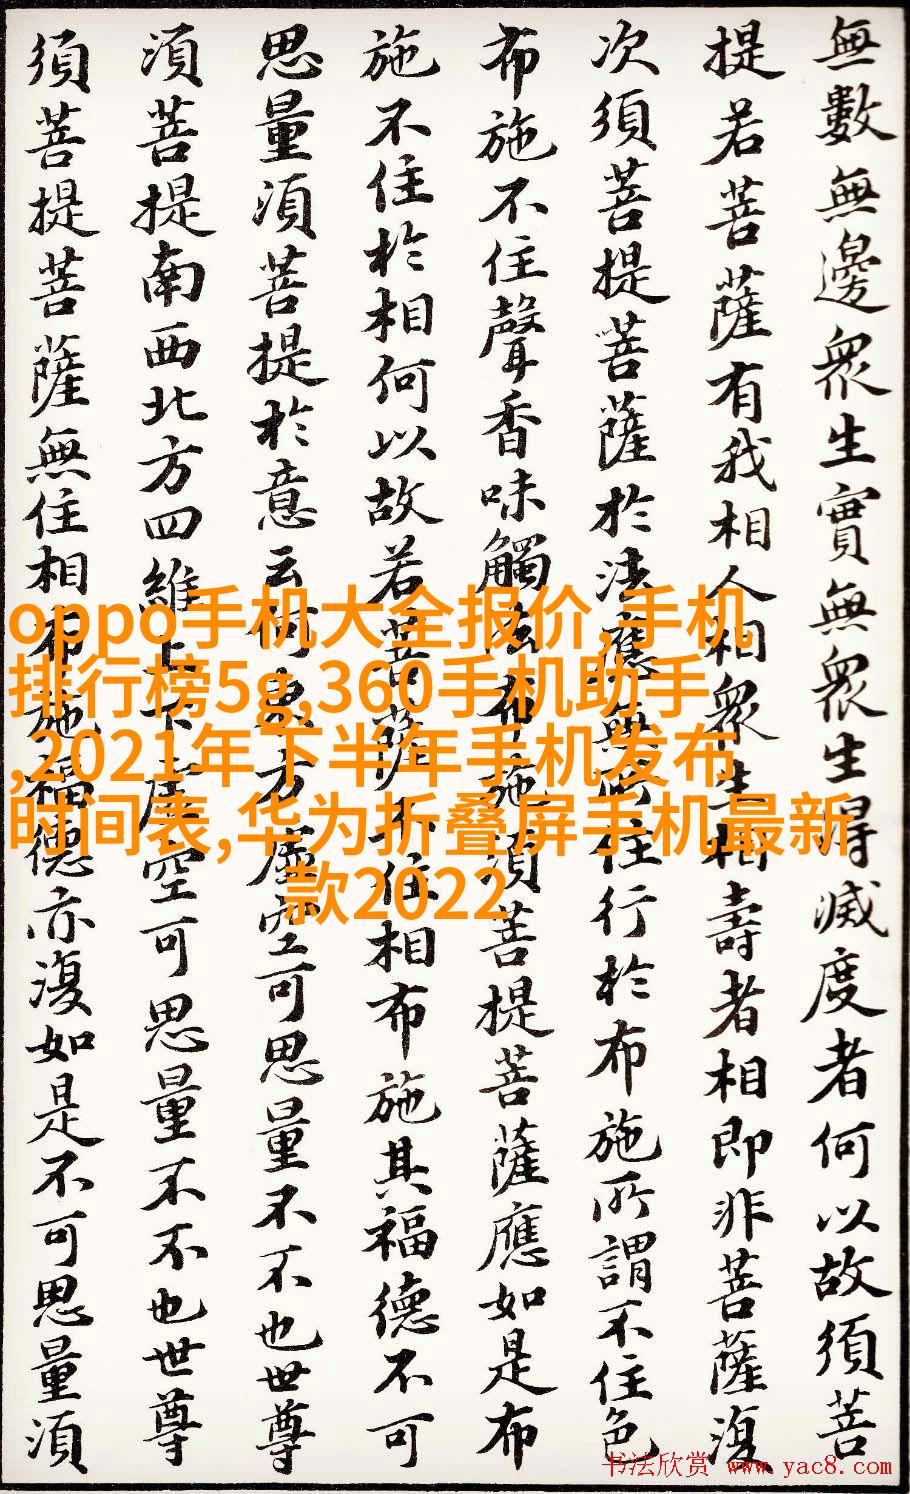 無數無邊眾生實無眾生得滅度者何以故須菩
提若菩薩有我相人相眾生相壽者相即非菩薩復
次須菩提菩薩於法應無所住行於布施所謂不住色
布施不住聲香味觸法布施須菩提菩薩應如是布
施不住於相何以故若菩薩不住相布施其福德不可
思量須菩提於意云何東方虛空可思量不不也世尊
須菩提南西北方四維上下虛空可思量不不也世尊
須菩提菩薩無住相布施福德亦復如是不可思量須
oppo手机大全报价,手机
排行榜5g,360手机助手
,2021年下半年手机发布
时间表,华为折叠屏手机最新
款2022
书法欣赏 www.yac8.com